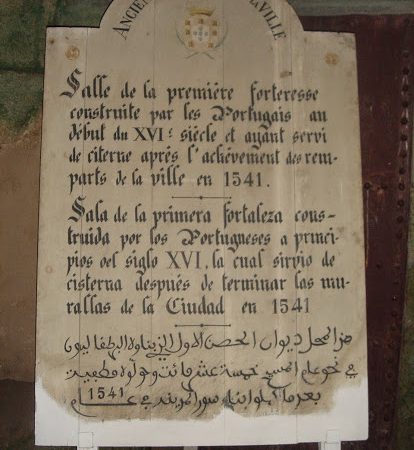 VILLE
Salle de la première forteresse
construite par les Portugais au
début du XVI.e siècle et ayant servi
de citerne après l'achèvement des rem-
parts de la ville en 1541.
Sala de la primera fortaleza cons-
truida por los Portugneses a princi-
pios oel siglo XVI, la cual sirvio de
cisterna después de terminar las mu-
rallas de la Ciudad en 1541
هذا المحل ديوان الحصن الاول الذي بناوه البرطقاليون
في نحو عام المسيح خمسة عشر مائت وحولوه مطفية
بعدما كملوا بناية سور المدينة في عام 1541